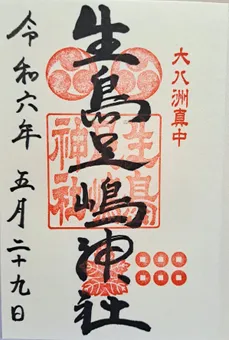 大八洲真中
生島足嶋神社
生島
足嶋
神社
令和六年 五月二十九日